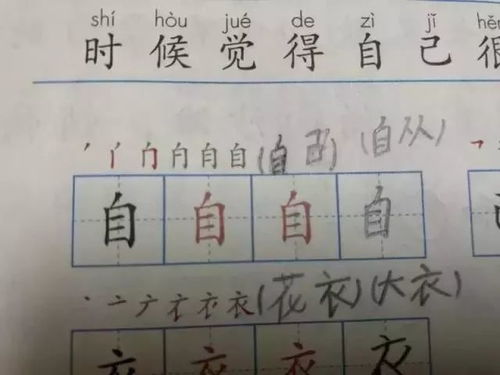 shí hòu jué de zì jǐ hěn
时 候 觉 得 自 己 很
自 (自己) (自从)
自 自 自 自
衣 (花衣) (大衣)
衣 衣 衣 衣